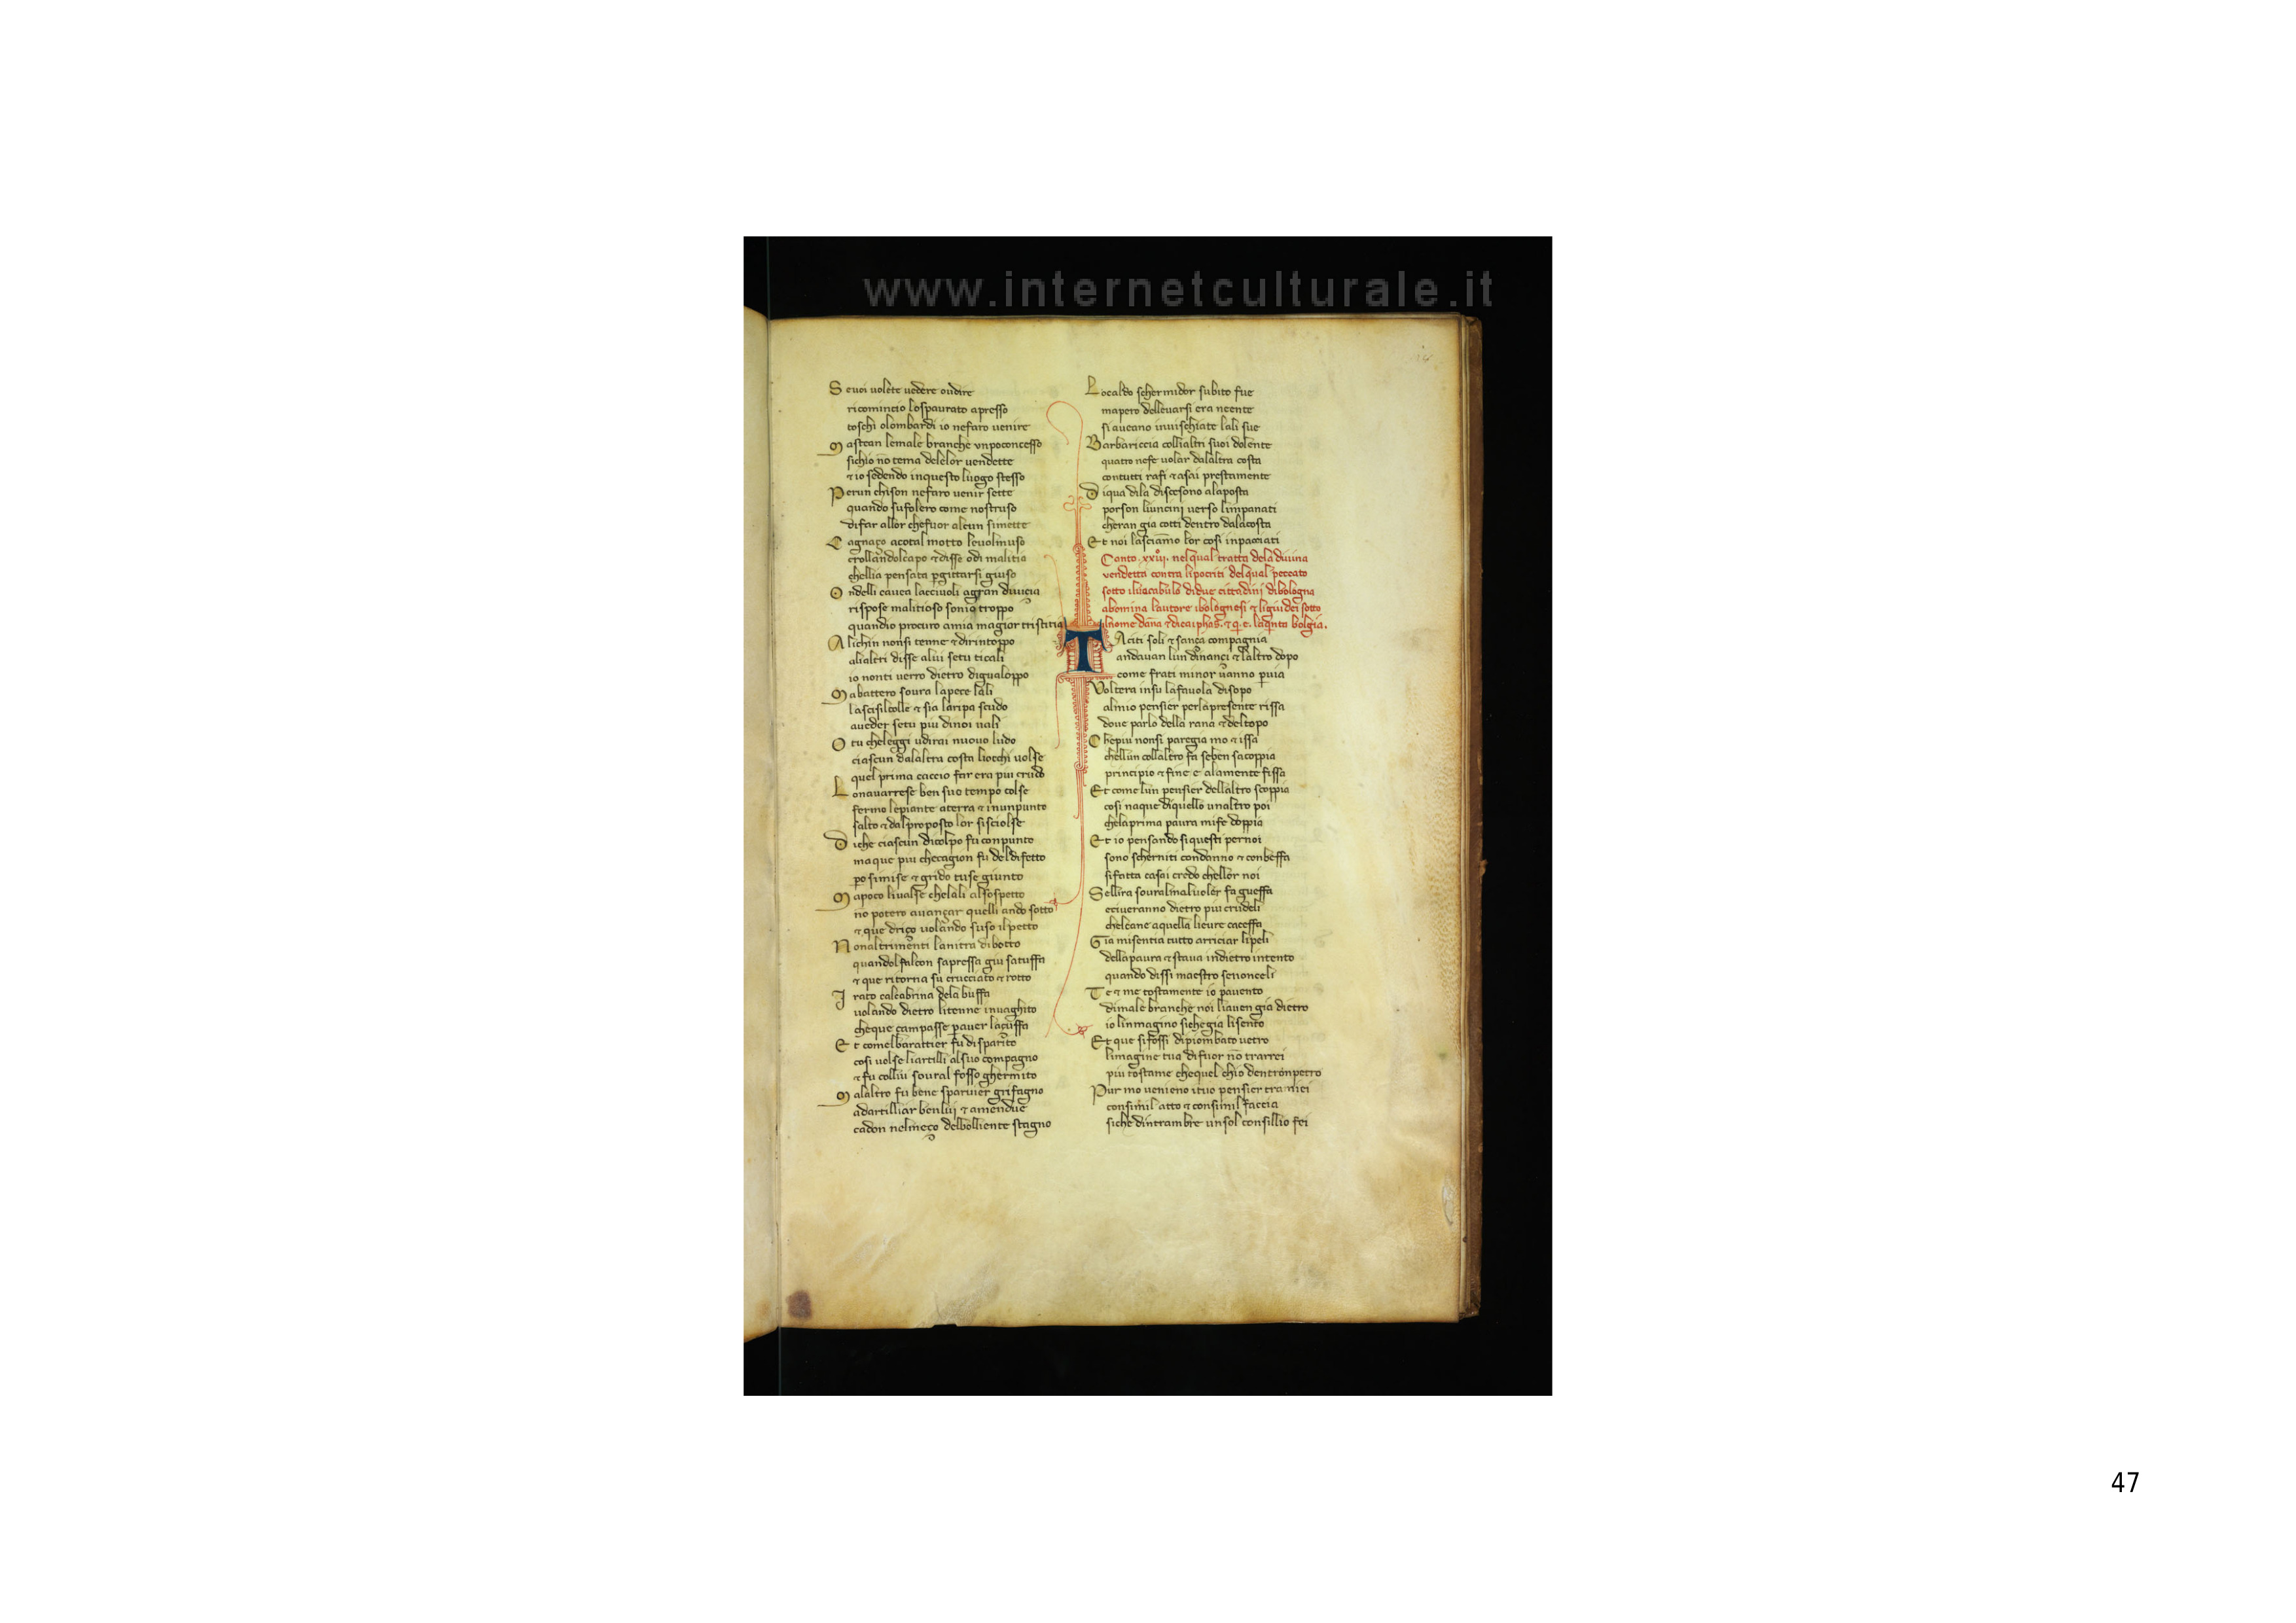 www.internetculturale.it
S evoi volete vedere oudire
ricomincio lospaurato apresso
toschi olombardi io nefaro venire
M astean lemale branche unpoconcesso
sichio nō tema delelor vendette
⁊ io sedendo inquesto luogo stesso
P erun chison nefaro venir sette
quando sufolero come nostruso
difar allor chefuor alcun simette
C agnaço acotal motto levolmuso
crollandolcapo ⁊ disse odi malitia
chellia pensata pgittarsi giuso
O ndelli cavea lacciuoli agran divicia
rispose malitioso soniq troppo
quandio procuro amia magior tristitia
A lichin nonsi tenne ⁊ dirintoppo
alialtri disse alui setu ticali
io nonti verro dietro digualoppo
M abattero soura lapece lali
lascisilcolle ⁊ sia laripa scudo
aveder setu piu dinoi vali
O tu cheleggi udirai nuovo ludo
ciascun dalaltra costa liocchi volse
quel prima caccio far era piu crudo
L onavarrese ben suo tempo colse
fermo lepiante aterra ⁊ inunpunto
salto ⁊ dalproposto lor sisciolse
D iche ciascun dicolpo fu conpunto
ma que piu checagion fu deldifetto
po simise ⁊ grido tuse giunto
M apoco livalse chelali alsospetto
nō potero avançar quelli ando sotto
⁊ que driço volando suso ilpetto
N onaltrimenti lanitra dibotto
quandolfalcon sapressa giu satuffa
⁊ que ritorna su crucciato ⁊ rotto
I rato calcabrina dela buffa
volando dietro litenne invaghito
cheque campasse paver laçuffa
E t comelbarattier fu disparito
cosi volse liartilli alsuo compagno
⁊ fu collui soural fosso ghermito
M alaltro fu bene sparvier grifagno
adartilliar benlui ⁊ amendue
cadon nelmeço delbolliente stagno
L ocaldo schermidor subito fue
mapero dellevarsi era neente
si aveano invischiate lali sue
B arbariccia collialtri suoi dolente
quatro nefe volar dalaltra costa
contutti rafi ⁊ asai prestamente
D iqua dila discesono alaposta
porson liuncini verso limpanati
cheran gia cotti dentro dalacosta
E t noi lasciamo lor cosi inpacciati
Canto .xxiii. nelqual tratta dela divina
vendetta contra lipocriti delqual peccato
sotto ilvocabulo didue cittadini dibologna
abomina lautore ibolognesi ⁊ ligiudei sotto
lnome danna ⁊ dicaiphas. ⁊ q. e. laqnta bolgia.
T Aciti soli ⁊ sança compagnia
andavan lun dinançi ⁊ laltro dopo
come frati minor vanno pvia
V oltera insu lafavola disopo
almio pensier perlapresente rissa
dove parlo della rana ⁊ deltopo
C hepiu nonsi paregia mo ⁊ issa
chellun collaltro fa seben sacoppia
principio ⁊ fine e alamente fissa
E t come lun pensier dellaltro scoppia
cosi naque diquello unaltro poi
chelaprima paura mife doppia
E t io pensando si questi pernoi
sono scherniti condanno ⁊ conbeffa
sifatta casai credo chellor noi
S ellira souralmalvoler fa gueffa
eciveranno dietro piu crudeli
chelcane aquella lievre caceffa
G ia misentia tutto arriciar lipeli
dellapaura ⁊ stava indietro intento
quando dissi maestro senonceli
T e ⁊ me tostamente io pavento
dimale branche noi liaven gia dietro
io linmagino sichegia lisento
E t que sifossi dipiombato vetro
limagine tua difuor nō trarrei
piu tostame chequel chio dentronpetro
P ur mo venieno ituo pensier tra miei
consimil atto ⁊ consimil faccia
siche dintrambre unsol consillio fei
47